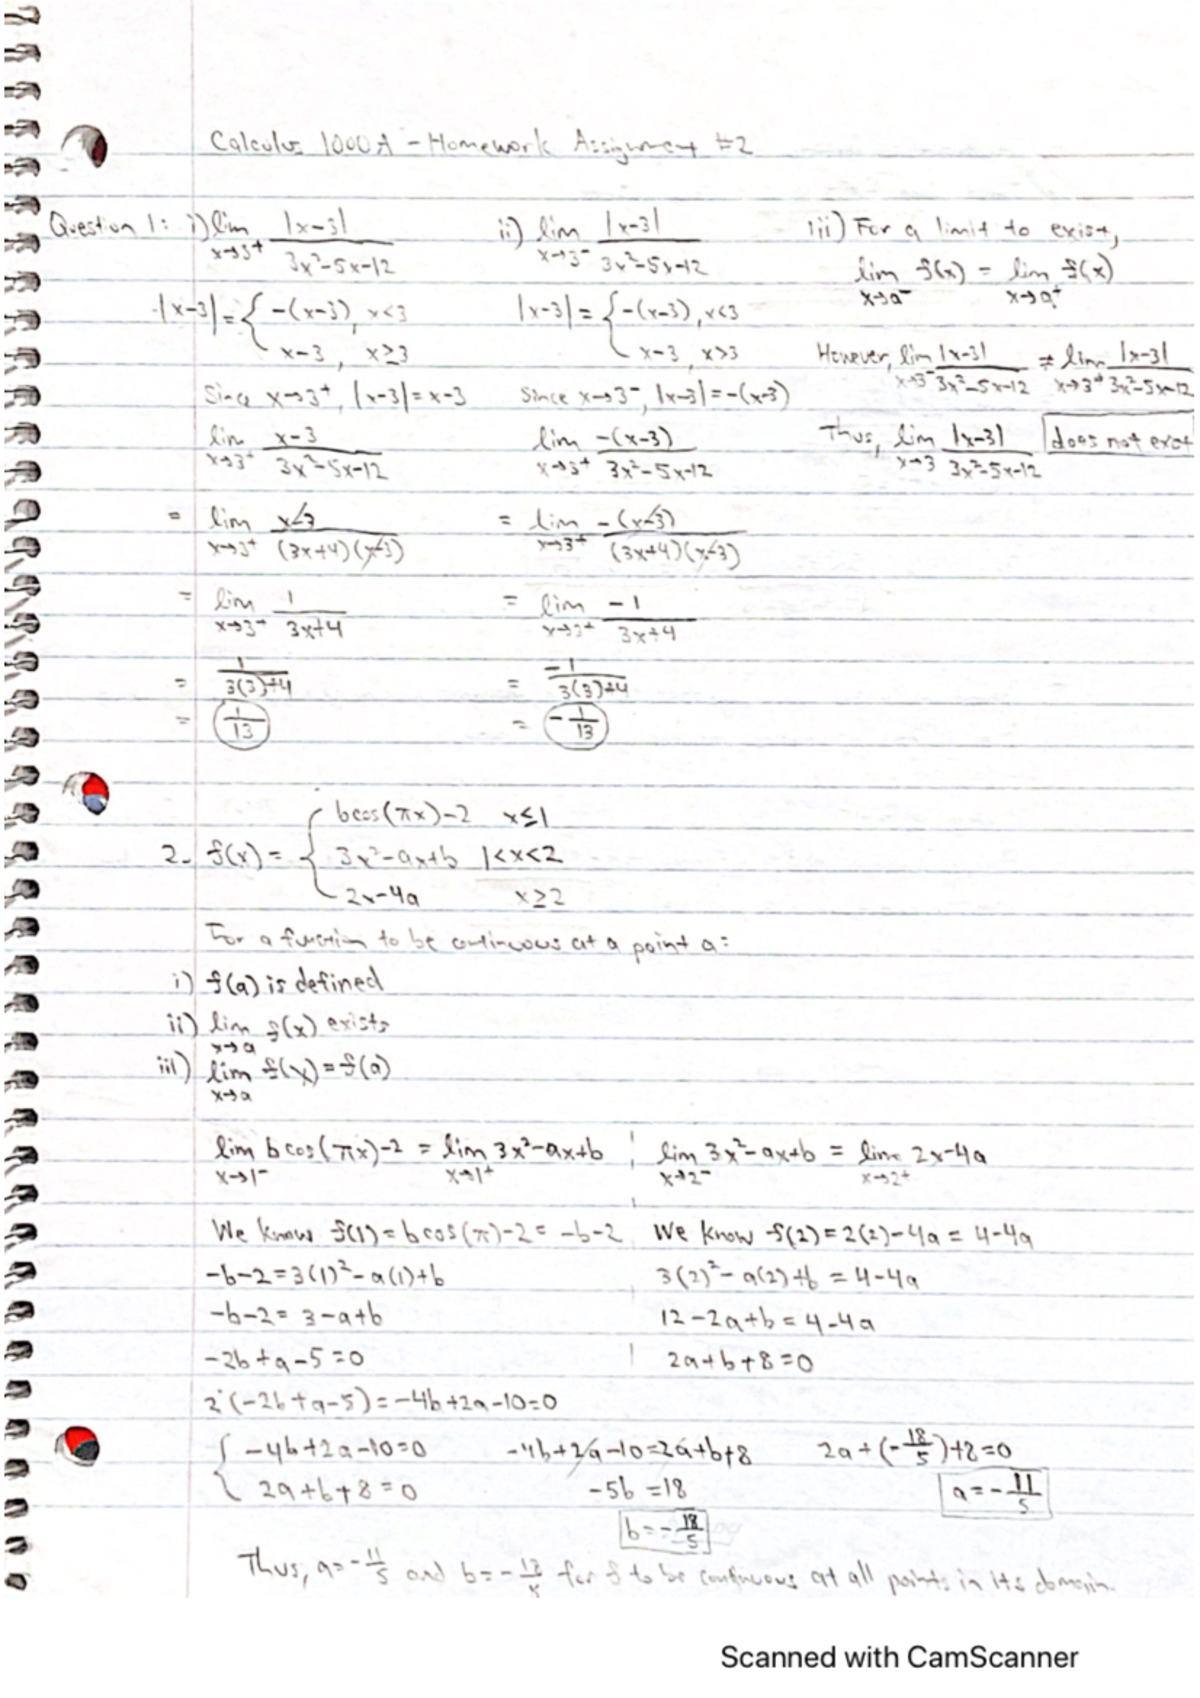 Calculus 1000A - Homework Assignment #2
Question 1: i) lim x→3⁺ |x-3| / 3x²-5x-12
|x-3| = { -(x-3), x<3
x-3, x≥3
Since x→3⁺, |x-3| = x-3
lim x→3⁺ x-3 / 3x²-5x-12
= lim x→3⁺ x-3 / (3x+4)(x-3)
= lim x→3⁺ 1 / 3x+4
= 1 / 3(3)+4
= 1/13
ii) lim x→3⁻ |x-3| / 3x²-5x-12
|x-3| = { -(x-3), x<3
x-3, x>3
Since x→3⁻, |x-3| = -(x-3)
lim x→3⁺ -(x-3) / 3x²-5x-12
= lim x→3⁺ -(x-3) / (3x+4)(x-3)
= lim x→3⁺ -1 / 3x+4
= -1 / 3(3)+4
= -1/13
iii) For a limit to exist,
lim x→a⁻ f(x) = lim x→a⁺ f(x)
However, lim x→3⁻ |x-3| / 3x²-5x-12 ≠ lim x→3⁺ |x-3| / 3x²-5x-12
Thus, lim x→3 |x-3| / 3x²-5x-12 does not exist
2. f(x) = { bcos(πx)-2 x≤1
3x²-ax+b 1<x<2
2x-4a x≥2
For a function to be continuous at a point a:
i) f(a) is defined
ii) lim x→a f(x) exists
iii) lim x→a f(x) = f(a)
lim x→1⁻ b cos(πx)-2 = lim x→1⁺ 3x²-ax+b
We know f(1) = b cos(π)-2 = -b-2
-b-2 = 3(1)²-a(1)+b
-b-2 = 3-a+b
-2b+a-5=0
2·(-2b+a-5) = -4b+2a-10=0
lim x→2⁻ 3x²-ax+b = lim x→2⁺ 2x-4a
We know f(2) = 2(2)-4a = 4-4a
3(2)²-a(2)+b = 4-4a
12-2a+b = 4-4a
2a+b+8=0
{ -4b+2a-10=0
2a+b+8=0
-4b+2a-10=2a+b+8
-5b=18
b=-18/5
2a+(-18/5)+8=0
a=-11/5
Thus, a=-11/5 and b=-18/5 for f to be continuous at all points in its domain.
Scanned with CamScanner